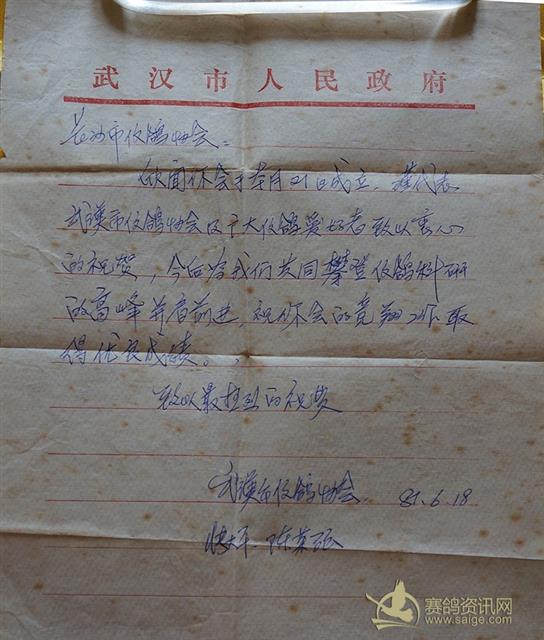 武汉市人民政府
长沙市信鸽协会:
欣闻你会于本月21日成立,谨代表
武漢市信鸽协会及广大信鸽爱好者致以衷心
的祝贺,今后为我们共同攀登信鸽科研
的高峰并肩前进,祝你会的竞翔工作取
得优良成绩。
致以最热烈的祝贺
武漢市信鸽协会 81.6.18
赛鸽资讯网
www.saige.com